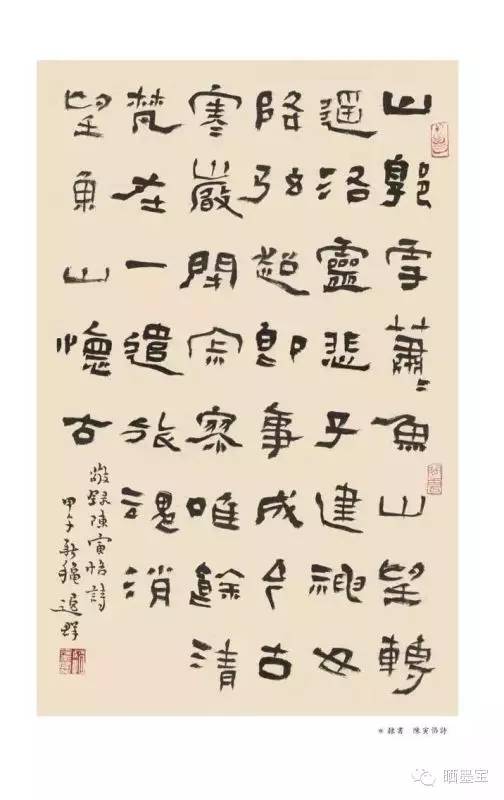 山郭雪蕭〻魚山望轉
遥洛靈悲子建神女
降弦超即事成今古
寒巖閉寂寥唯餘清
梵在一遣旅魂消
望魚山懷古
敬録陳寅恪詩
甲午新穐
隸書 陳寅恪詩
晒墨宝